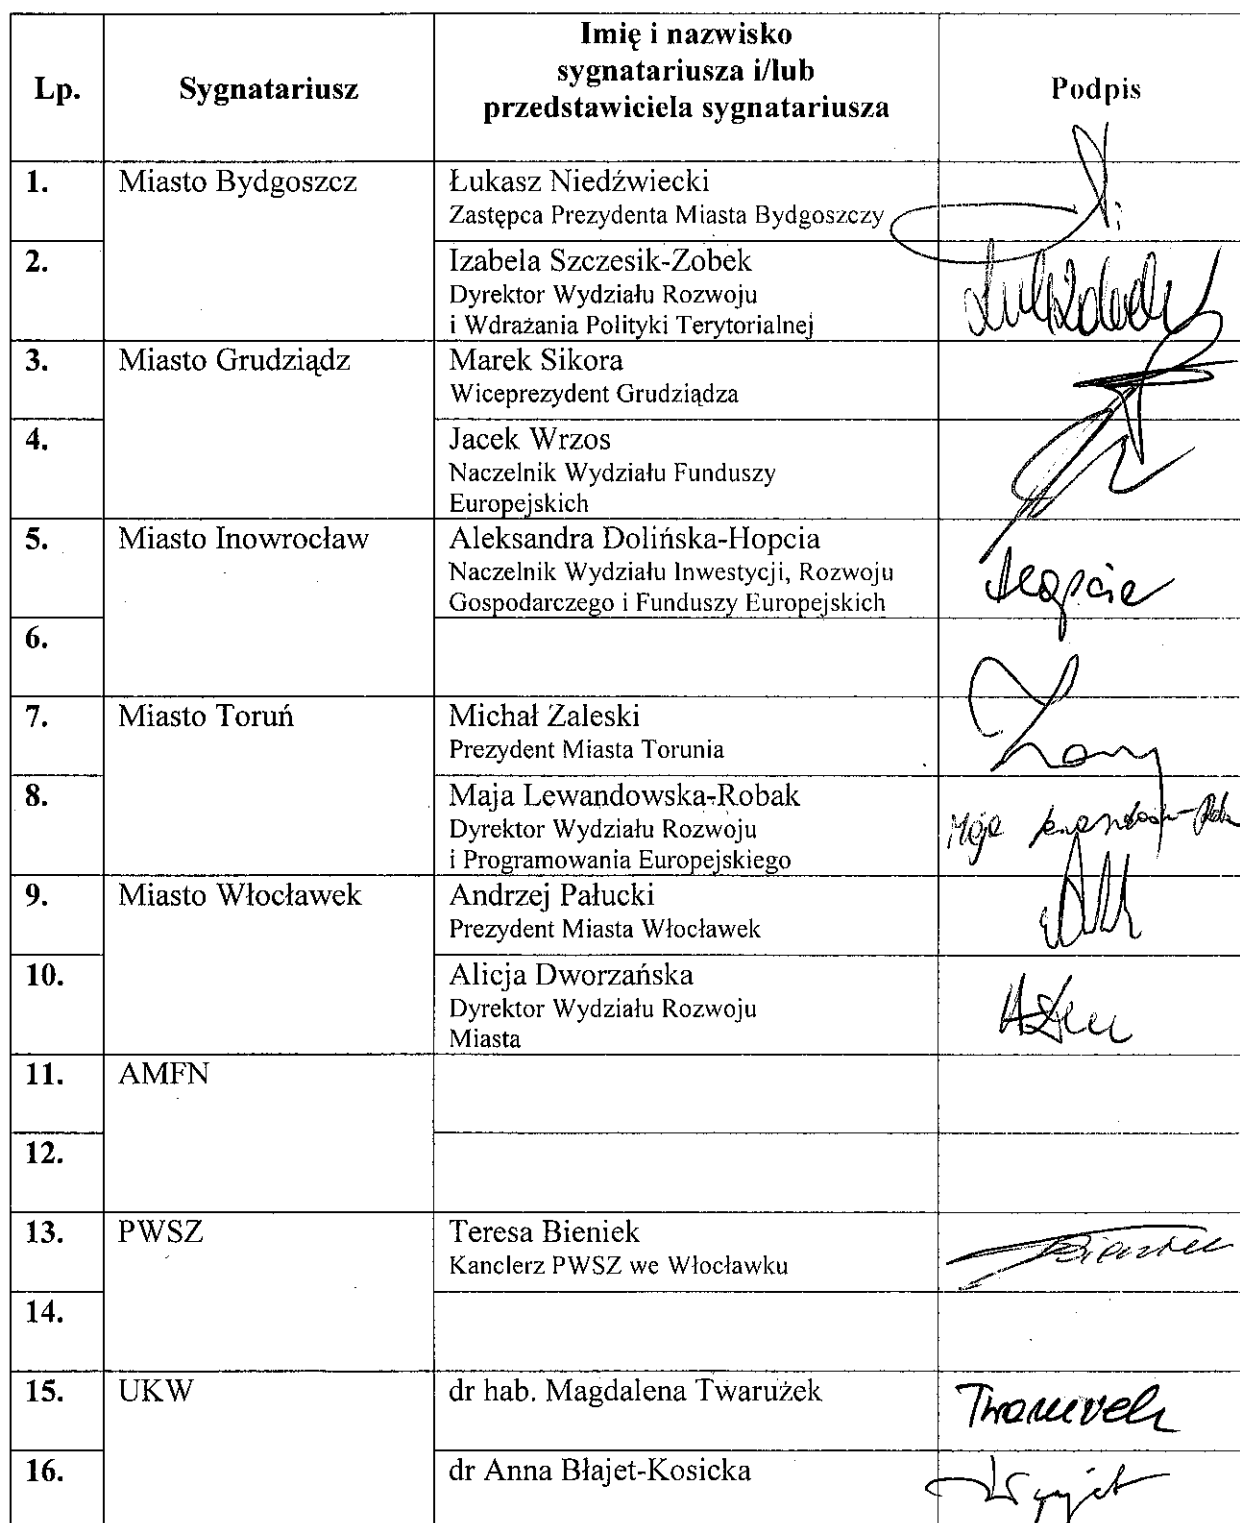 Lp.
Sygnatariusz
Imię i nazwisko
sygnatariusza i/lub
przedstawiciela sygnatariusza
Podpis
1.
Miasto Bydgoszcz
Łukasz Niedźwiecki
Zastępca Prezydenta Miasta Bydgoszczy
2.
Izabela Szczesik-Zobek
Dyrektor Wydziału Rozwoju
i Wdrażania Polityki Terytorialnej
3.
Miasto Grudziądz
Marek Sikora
Wiceprezydent Grudziądza
4.
Jacek Wrzos
Naczelnik Wydziału Funduszy
Europejskich
5.
Miasto Inowrocław
Aleksandra Dolińska-Hopcia
Naczelnik Wydziału Inwestycji, Rozwoju
Gospodarczego i Funduszy Europejskich
6.
7.
Miasto Toruń
Michał Zaleski
Prezydent Miasta Torunia
8.
Maja Lewandowska-Robak
Dyrektor Wydziału Rozwoju
i Programowania Europejskiego
Maja
9.
Miasto Włocławek
Andrzej Pałucki
Prezydent Miasta Włocławek
10.
Alicja Dworzańska
Dyrektor Wydziału Rozwoju
Miasta
11.
AMFN
12.
13.
PWSZ
Teresa Bieniek
Kanclerz PWSZ we Włocławku
14.
15.
UKW
dr hab. Magdalena Twarużek
16.
dr Anna Błajet-Kosicka